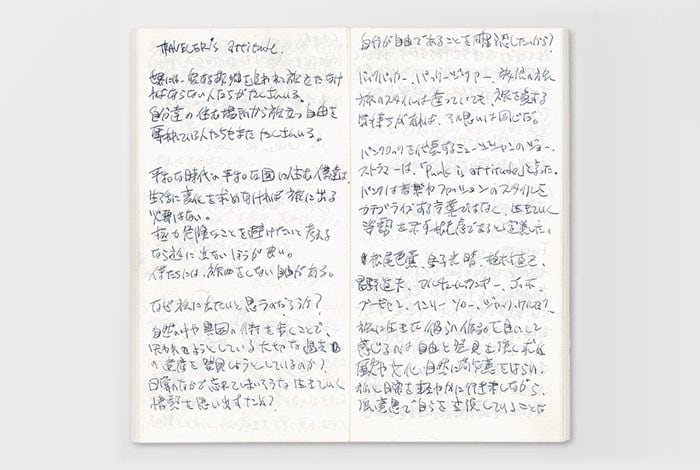 TRAVELER'S attitude.
世界には、愛する故郷を追われて旅立たなけ
ればならない人たちがたくさんいる。
自分達の住む場所から旅立つ自由を
奪われている人たちもまた たくさんいる。
平和な時代の平和な国に住む僕達は、
生活に変化を求めなければ 旅に出る
必要はない。
極力危険なことを避けたいと考える
なら旅に出ないほうが良い。
僕たちには、旅をしない自由がある。
なぜ旅に出たいと思うのだろうか?
自然の中や異国の街を歩くことで、
失われようとしている大切な過去
の遺産を発見しようとしているのか?
日常のなかで忘れてしまいそうな 生きていく
姿勢を思い出すため?
自分が自由であることを確認したいから?
バックパッカー、バッグ 旅
旅のスタイルは違っていても、旅を愛する
気持ちがあれば、その思いは同じだ。
パンクロックを代表するミュージシャンのジョー・
ストラマーは、「Punk is attitude」と言った。
パンクは音楽やファッションのスタイルを
カテゴライズする言葉ではなく、生きていく
姿勢を示す
松尾芭蕉、金子光晴、植村直己、
星野道夫、ゴッホ、
ゴーギャン、ヘンリー・ソロー、ジャック・ケルアック。
旅に生きた彼らの作品を目にして
感じるのは 自由と発見を強く求め
歴史や文化、自然に敬意をはらい、
旅と日常を軽やかに行き来しながら、
自らを主張していることだ